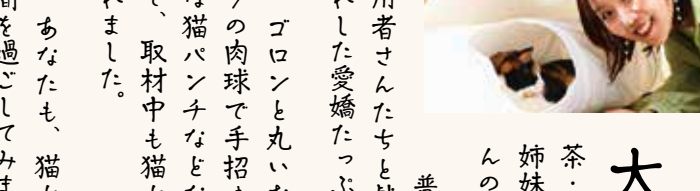 大
茶・
姉妹
んの
普
用者さんたちと
れした愛嬌たっぷ
ゴロンと丸い
の肉球で手招
な猫パンチなど
で、取材中も猫
れました。
あなたも、猫
間を過ごしてみま